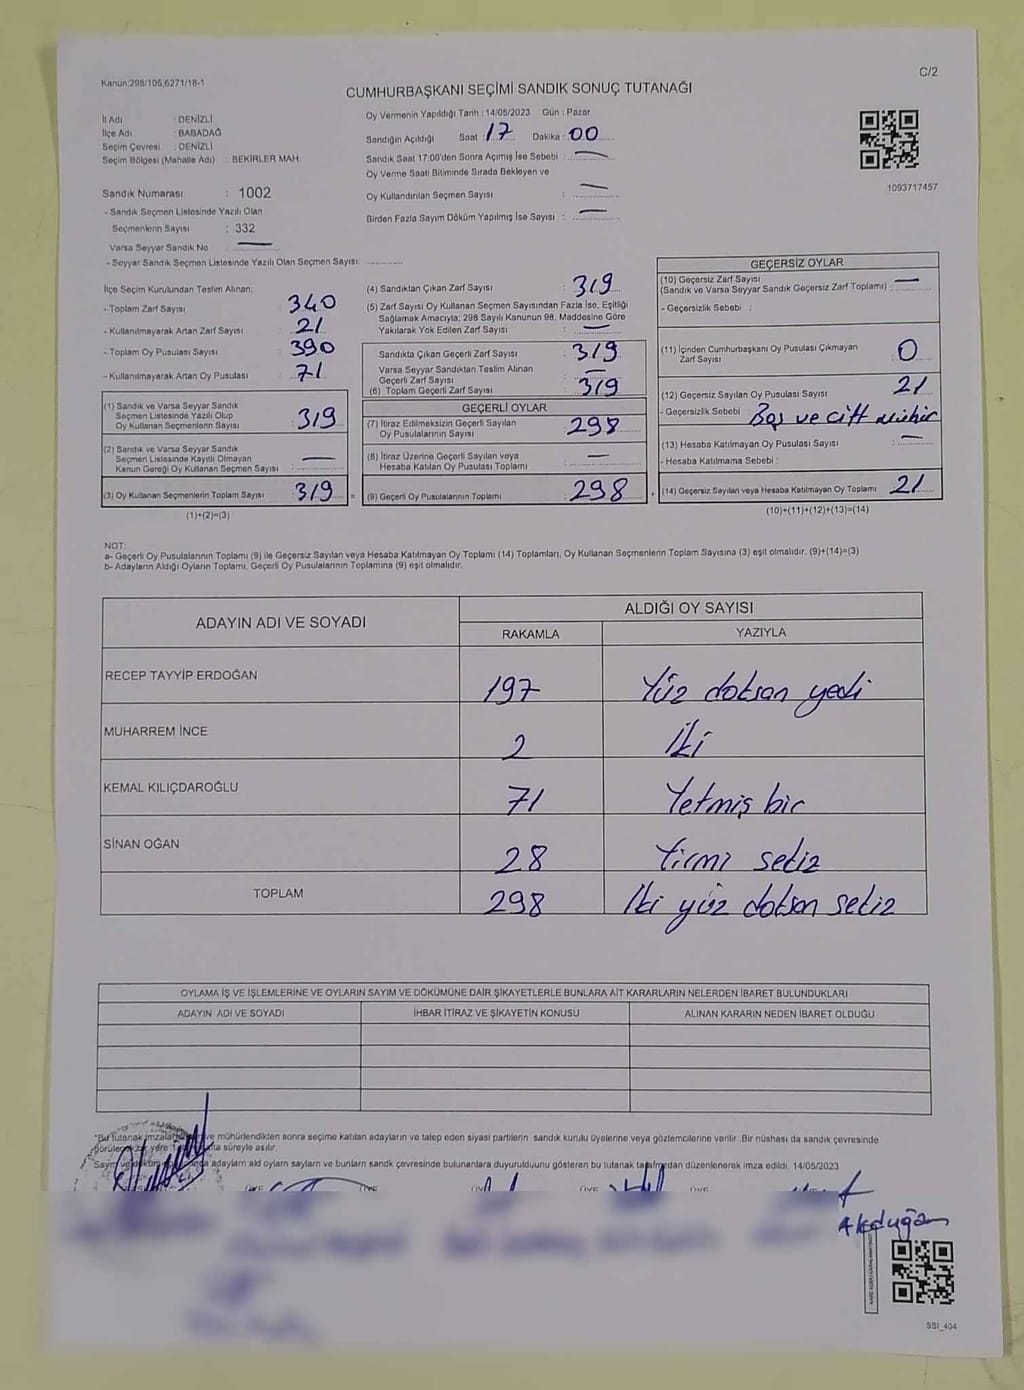 Kanun;298/105,6271/18-1
C/2
CUMHURBAŞKANI SEÇİMİ SANDIK SONUÇ TUTANAĞI
İl Adı : DENİZLİ
İlçe Adı : BABADAĞ
Seçim Çevresi : DENİZLİ
Seçim Bölgesi (Mahalle Adı) : BEKİRLER MAH.
Sandık Numarası : 1002
- Sandık Seçmen Listesinde Yazılı Olan
Seçmenlerin Sayısı : 332
Varsa Seyyar Sandık No
- Seyyar Sandık Seçmen Listesinde Yazılı Olan Seçmen Sayısı:
Oy Vermenin Yapıldığı Tarih : 14/05/2023 Gün : Pazar
Sandığın Açıldığı Saat : 17 Dakika : 00
Sandık Saat 17:00'den Sonra Açımış İse Sebebi :
Oy Verme Saati Bitiminde Sırada Bekleyen ve
Oy Kullandırılan Seçmen Sayısı :
Birden Fazla Sayım Döküm Yapılmış İse Sayısı :
1093717457
İlçe Seçim Kurulundan Teslim Alınan:
- Toplam Zarf Sayısı : 340
- Kullanılmayarak Artan Zarf Sayısı : 21
- Toplam Oy Pusulası Sayısı : 390
- Kullanılmayarak Artan Oy Pusulası : 71
(1) Sandık ve Varsa Seyyar Sandık
Seçmen Listesinde Yazılı Olup
Oy Kullanan Seçmenlerin Sayısı : 319
(2) Sandık ve Varsa Seyyar Sandık
Seçmen Listesinde Kayıtlı Olmayan
Kanun Gereği Oy Kullanan Seçmen Sayısı :
(3) Oy Kullanan Seçmenlerin Toplam Sayısı : 319 =
(1)+(2)=(3)
(4) Sandıktan Çıkan Zarf Sayısı : 319
(5) Zarf Sayısı Oy Kullanan Seçmen Sayısından Fazla İse, Eşitliği
Sağlamak Amacıyla; 298 Sayılı Kanunun 98. Maddesine Göre
Yakılarak Yok Edilen Zarf Sayısı :
Sandıkta Çıkan Geçerli Zarf Sayısı : 319
Varsa Seyyar Sandıktan Teslim Alınan
Geçerli Zarf Sayısı :
(6) Toplam Geçerli Zarf Sayısı : 319
GEÇERLİ OYLAR
(7) İtiraz Edilmeksizin Geçerli Sayılan
Oy Pusulalarının Sayısı : 298
(8) İtiraz Üzerine Geçerli Sayılan veya
Hesaba Katılan Oy Pusulası Toplamı :
(9) Geçerli Oy Pusulalarının Toplamı : 298 +
GEÇERSİZ OYLAR
(10) Geçersiz Zarf Sayısı
(Sandık ve Varsa Seyyar Sandık Geçersiz Zarf Toplamı) :
- Geçersizlik Sebebi :
(11) İçinden Cumhurbaşkanı Oy Pusulası Çıkmayan
Zarf Sayısı : 0
(12) Geçersiz Sayılan Oy Pusulası Sayısı : 21
- Geçersizlik Sebebi : Boş ve Çift mühür
(13) Hesaba Katılmayan Oy Pusulası Sayısı :
- Hesaba Katılmama Sebebi :
(14) Geçersiz Sayılan veya Hesaba Katılmayan Oy Toplamı : 21
(10)+(11)+(12)+(13)=(14)
NOT:
a- Geçerli Oy Pusulalarının Toplamı (9) ile Geçersiz Sayılan veya Hesaba Katılmayan Oy Toplamı (14) Toplamları, Oy Kullanan Seçmenlerin Toplam Sayısına (3) eşit olmalıdır. (9)+(14)=(3)
b- Adayların Aldığı Oyların Toplamı, Geçerli Oy Pusulalarının Toplamına (9) eşit olmalıdır.
ADAYIN ADI VE SOYADI
ALDIĞI OY SAYISI
RAKAMLA YAZIYLA
RECEP TAYYİP ERDOĞAN 197 Yüz doksan yedi
MUHARREM İNCE 2 İki
KEMAL KILIÇDAROĞLU 71 Yetmiş bir
SİNAN OĞAN 28 Yirmi sekiz
TOPLAM 298 İki yüz doksan sekiz
OYLAMA İŞ VE İŞLEMLERİNE VE OYLARIN SAYIM VE DÖKÜMÜNE DAİR ŞİKAYETLERLE BUNLARA AİT KARARLARIN NELERDEN İBARET BULUNDUKLARI
ADAYIN ADI VE SOYADI İHBAR İTİRAZ VE ŞİKAYETİN KONUSU ALINAN KARARIN NEDEN İBARET OLDUĞU
"Bu tutanak imzalanıp ve mühürlendikten sonra seçime katılan adayların ve talep eden siyasi partilerin sandık kurulu üyelerine veya gözlemcilerine verilir .Bir nüshası da sandık çevresinde
görülecek bir yere süreyle asılır.
Sayım ve adayların ald oyların sayların ve bunların sandk çevresinde bulunanlara duyurulduunu gösteren bu tutanak tarafmzdan düzenlenerek imza edildi. 14/05/2023
ÜYE ÜYE ÜYE ÜYE
Akduğan
SSI_404